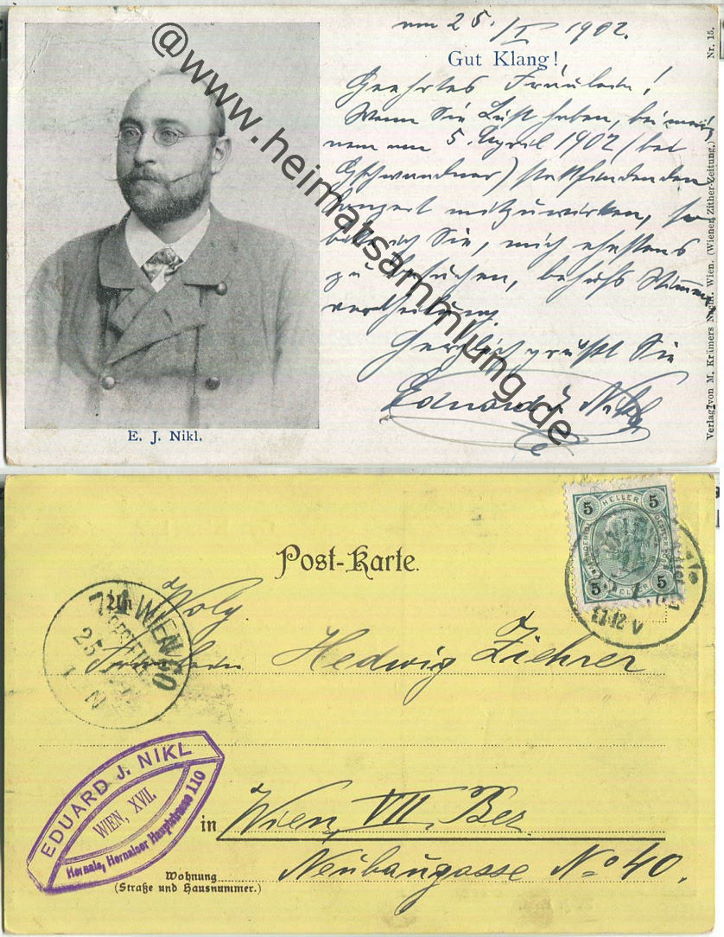 am 25./I 1902.
Gut Klang!
Geehrtes Fräulein!
Wenn Sie Lust haben, bei mei-
nem am 5. April 1902 (bei
Gschwandner) stattfindenden
Konzert mitzuwirken, so
bitte ich Sie, mich ehestens
zu besuchen, behufs Stimmen-
vertheilung.
Herzlich grüßt Sie
Eduard J. Nikl
E. J. Nikl.
Nr. 15.
Verlag von M. Krämers Nachf. Wien. (Wiener Zither-Zeitung.)
@www.heimatsammlung.de
Post-Karte.
5 HELLER 5
5 HELLER 5
11-12 V
WIEN 60
25
Wolg.
Fräulein Hedwig Ziehrer
EDUARD J. NIKL
WIEN, XVII.
Hernals, Hernalser Hauptstrasse 110
in Wien, VII. Bez.
Neubaugasse No 40.
Wohnung
(Straße und Hausnummer.)